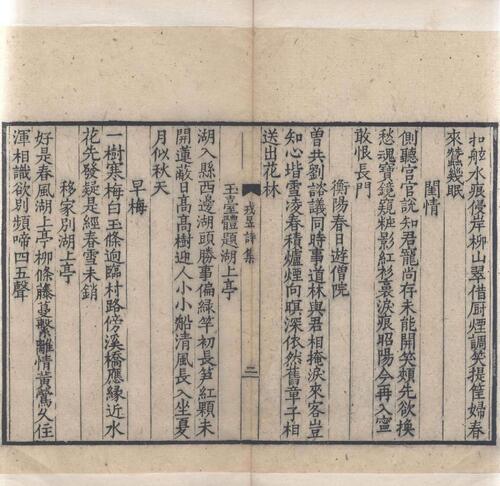 扣舷水痕侵岸柳山翠借厨煙調笑提筐婦春
來蠶幾眠
閨情
側聽宫官說知君寵尚存未能開笑頰先欲換
愁魂寶鏡窺粧影紅衫裏淚痕昭陽今再入寧
敢恨長門
衡陽春日遊僧院
曾共劉諮議同時事道林與君相掩淚來客豈
知心堦雪凌春積爐煙向暝深依然舊童子相
送出花林
戎昱詩集
二
玉臺體題湖上亭
湖入縣西邊湖頭勝事偏綠竿初長笋紅顆未
開蓮蔽日高高樹迎人小小船清風長入坐夏
月似秋天
早梅
一樹寒梅白玉條逈臨村路傍溪橋應緣近水
花先發疑是經春雪未銷
移家別湖上亭
好是春風湖上亭柳條藤蔓繫離情黄鶯久住
渾相識欲別頻啼四五聲